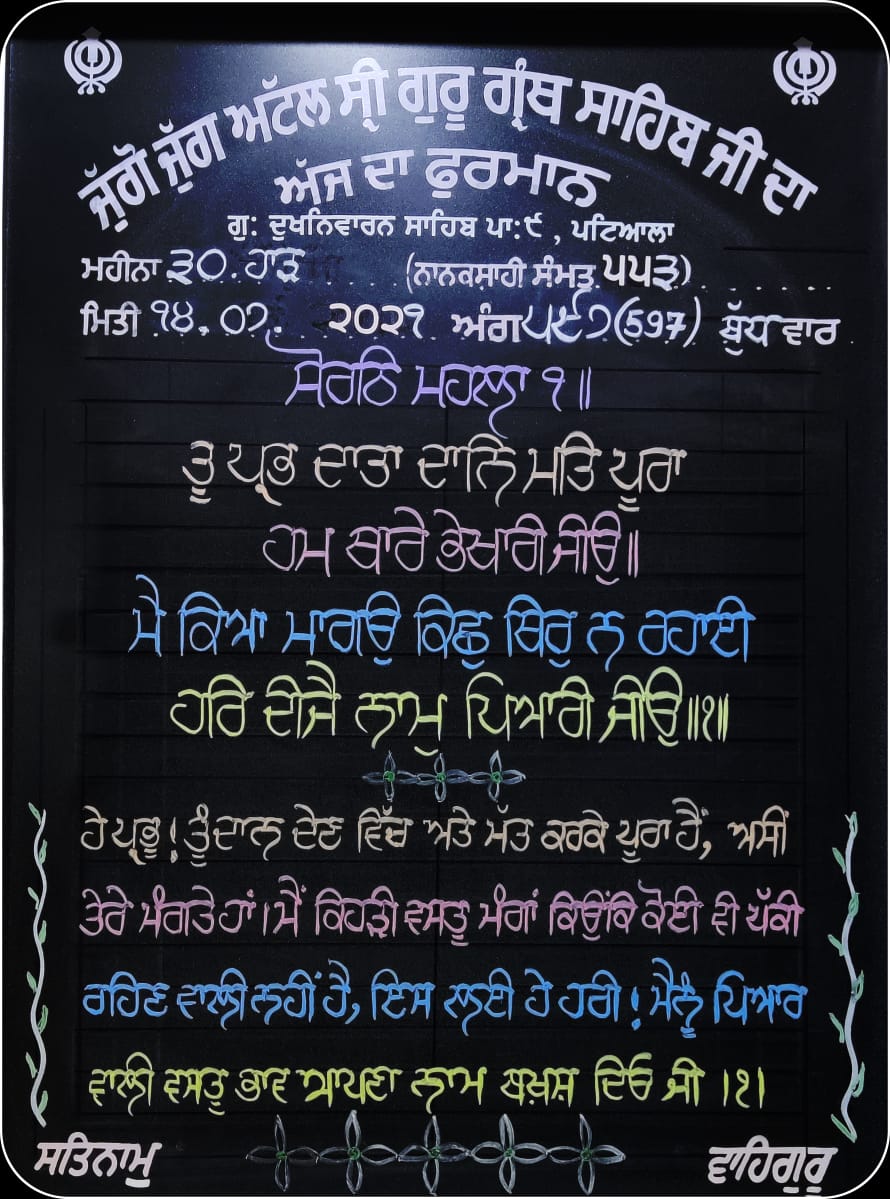 ਜੁੱਗੋ ਜੁੱਗ ਅੱਟਲ ਸ੍ਰੀ ਗੁਰੂ ਗ੍ਰੰਥ ਸਾਹਿਬ ਜੀ ਦਾ
ਅੱਜ ਦਾ ਫੁਰਮਾਨ
ਗੁ: ਦੁਖਨਿਵਾਰਨ ਸਾਹਿਬ ਪਾ:੯ , ਪਟਿਆਲਾ
ਮਹੀਨਾ ੩੦. ਹਾੜ (ਨਾਨਕਸ਼ਾਹੀ ਸੰਮਤ ੫੫੩)
ਮਿਤੀ ੧੪.੦੭. ੨੦੨੧ ਅੰਗ ੫੯੭ (597) ਬੁੱਧ ਵਾਰ
ਸੋਰਠਿ ਮਹਲਾ ੧॥
ਤੂ ਪ੍ਰਭ ਦਾਤਾ ਦਾਨਿ ਮਤਿ ਪੂਰਾ
ਹਮ ਥਾਰੇ ਭੇਖਾਰੀ ਜੀਉ॥
ਮੈ ਕਿਆ ਮਾਗਉ ਕਿਛੁ ਥਿਰੁ ਨ ਰਹਾਈ
ਹਰਿ ਦੀਜੈ ਨਾਮੁ ਪਿਆਰੀ ਜੀਉ॥੧॥
ਹੇ ਪ੍ਰਭੂ! ਤੂੰ ਦਾਨ ਦੇਣ ਵਿੱਚ ਅਤੇ ਮੱਤ ਕਰਕੇ ਪੂਰਾ ਹੈਂ, ਅਸੀਂ
ਤੇਰੇ ਮੰਗਤੇ ਹਾਂ। ਮੈਂ ਕਿਹੜੀ ਵਸਤੂ ਮੰਗਾਂ ਕਿਉਂਕਿ ਕੋਈ ਵੀ ਪੱਕੀ
ਰਹਿਣ ਵਾਲੀ ਨਹੀਂ ਹੈ, ਇਸ ਲਈ ਹੇ ਹਰੀ! ਮੈਨੂੰ ਪਿਆਰ
ਵਾਲੀ ਵਸਤੂ ਭਾਵ ਆਪਣਾ ਨਾਮ ਬਖ਼ਸ਼ ਦਿਓ ਜੀ ।੧।
ਸਤਿਨਾਮੁ ਵਾਹਿਗੁਰੂ